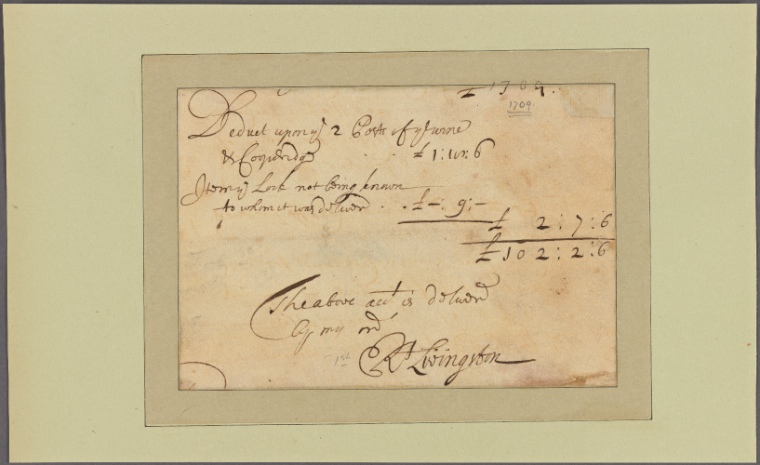 £ 1709.
1709
Deduct upon yͤ 2 Posts of
£ 1: : 6
Item yͤ Lock not being known
to whom it was deliverd . £ -: 9:-
£ 2: 7: 6
£ 102: 2: 6
The above acct is deliverd
by my ordr
1st Rt Livingston